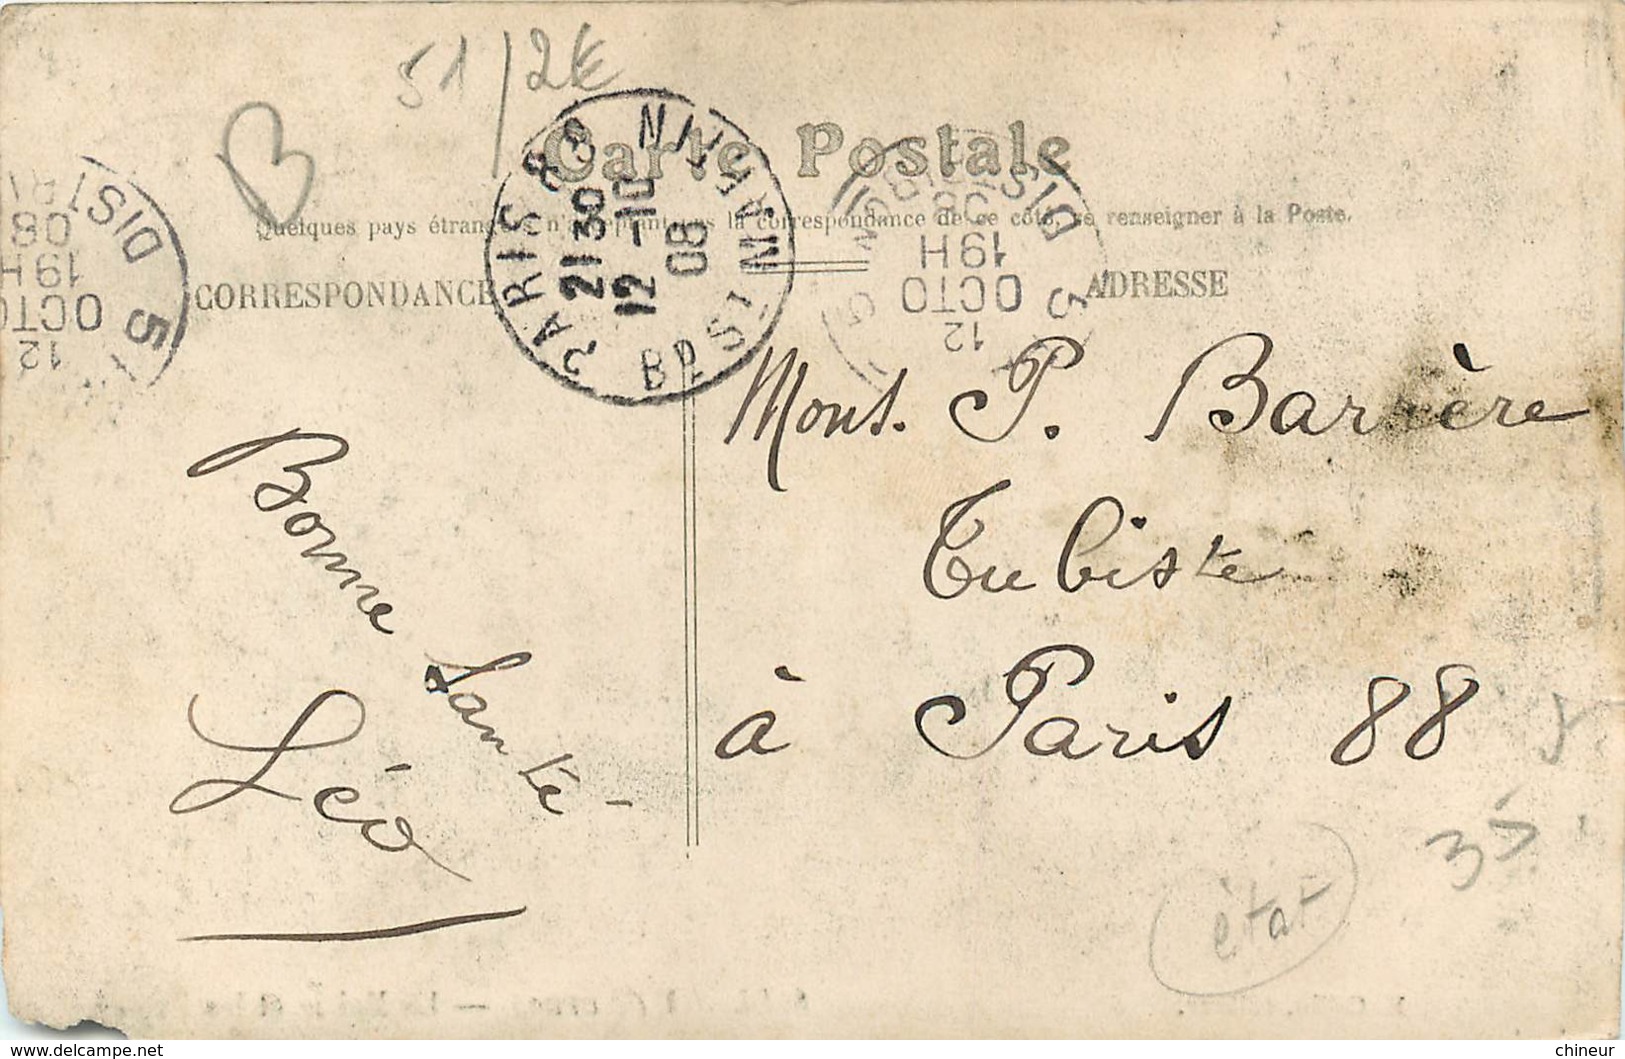 51/2€
Carte Postale
Quelques pays étrangers n'acceptant pas la correspondance de ce côté, se renseigner à la Poste.
CORRESPONDANCE
ADRESSE
PARIS 88
21 30
12 -10
08
BD ST MARTIN
DIS
5
08
19H
OCTO
12
DISTRI
5
19H
OCTO
12
Mons. P. Barrère
Tubiste
à Paris 88
Bonne Santé
Léo
35
état
chineur